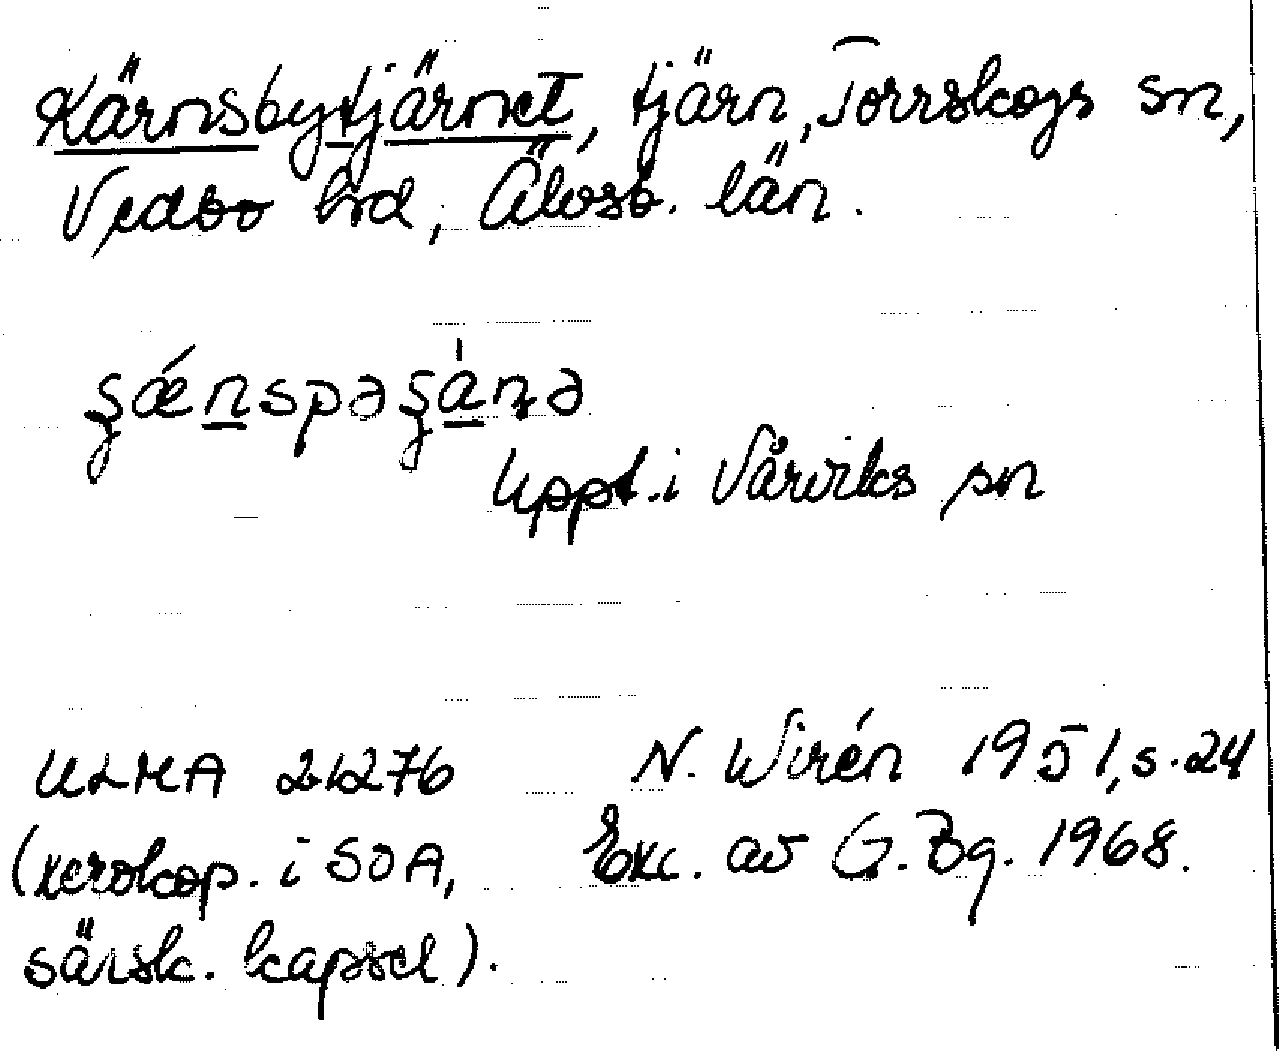 Kärnsbytjärnet, tjärn, Torrskogs sn,
Vedbo hd, Älvsb. län.
ʂǽnspəʂànə
Uppt. i Vårviks sn
ULMA 21276 N. Wirén 1951, s. 24
(xerokop. i SOA, Exc. av G. Bg. 1968.
särsk. kapsel).